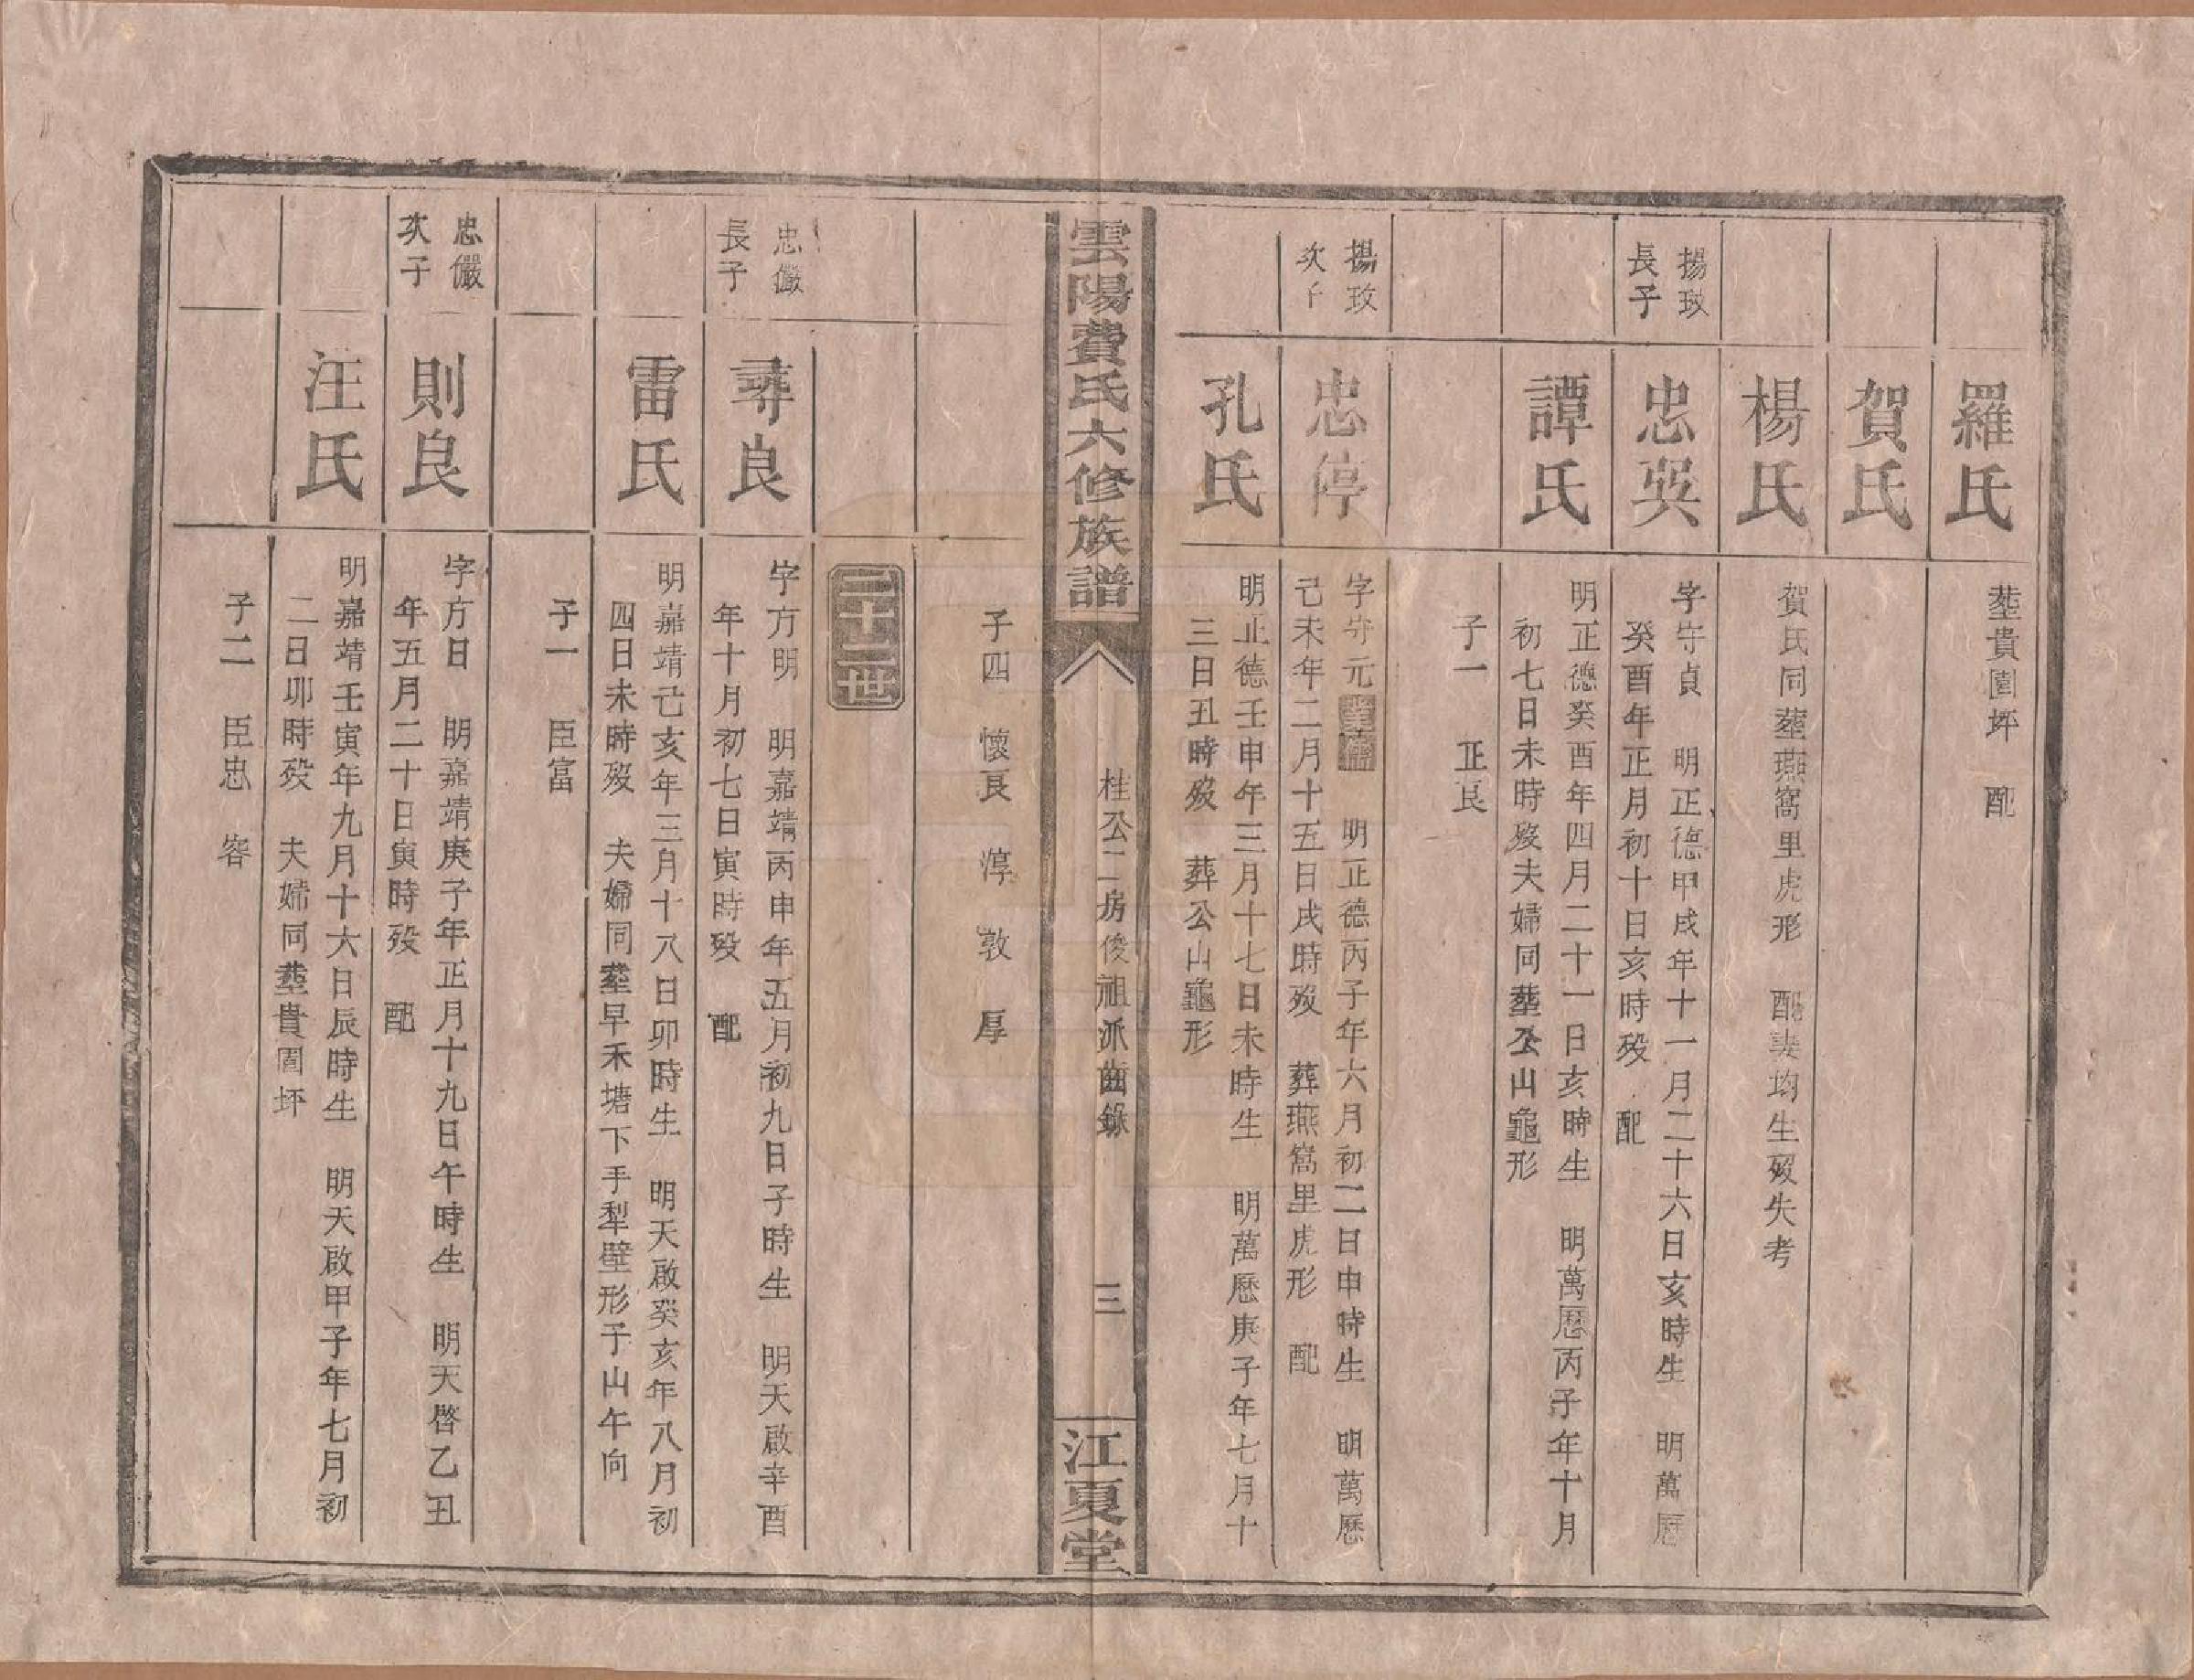 羅氏
塟貴園坪　配
賀氏
楊氏
賀氏同塟燕窩里虎形　配妻均生歿失考
揚玫
長子
忠㒷
字守貞　明正德甲戌年十一月二十六日亥時生　明萬歷
癸酉年正月初十日亥時歿　配
譚氏
明正德癸酉年四月二十一日亥時生　明萬歷丙子年十月
初七日未時歿夫婦同塟公山龜形
子一　正良
揚玫
次子
忠停
字守元　明正德丙子年六月初二日申時生　明萬歷
己未年二月十五日戌時歿　葬燕窩里虎形　配
孔氏
明正德壬申年三月十七日未時生　明萬歷庚子年七月十
三日丑時歿　葬公山龜形
雲陽費氏六修族譜
桂公二房俊祖派齒錄
三
江夏堂
子四　懷良　淳　敦　厚
二十二世
忠儼
長子
尋良
字方明　明嘉靖丙申年五月初九日子時生　明天啟辛酉
年十月初七日寅時歿　配
雷氏
明嘉靖己亥年三月十八日卯時生　明天啟癸亥年八月初
四日未時歿　夫婦同塟早禾塘下手犁壁形子山午向
子一　臣富
忠儼
次子
則良
字方日　明嘉靖庚子年正月十九日午時生　明天啓乙丑
年五月二十日寅時歿　配
汪氏
明嘉靖壬寅年九月十六日辰時生　明天啟甲子年七月初
二日卯時歿　夫婦同塟貴園坪
子二　臣忠　容